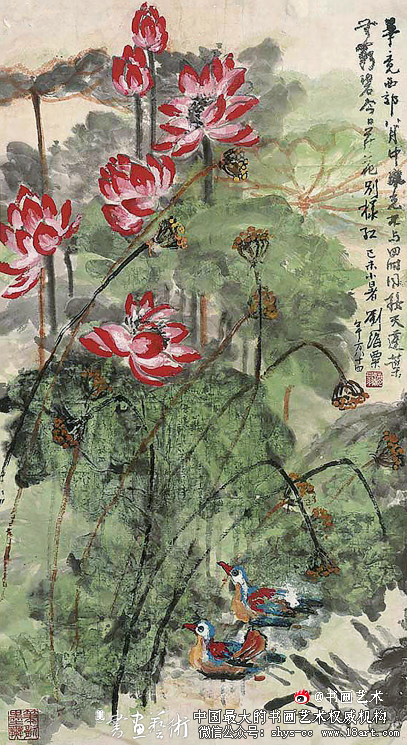 畢竟西湖六月中風光不与四时同接天蓮葉
無窮碧映日荷花別樣紅 己未小暑 劉海粟
年方八十四
@书画艺术
書畫藝術 中国最大的书画艺术权威机构
微信公众号：shys-cc www.18art.com